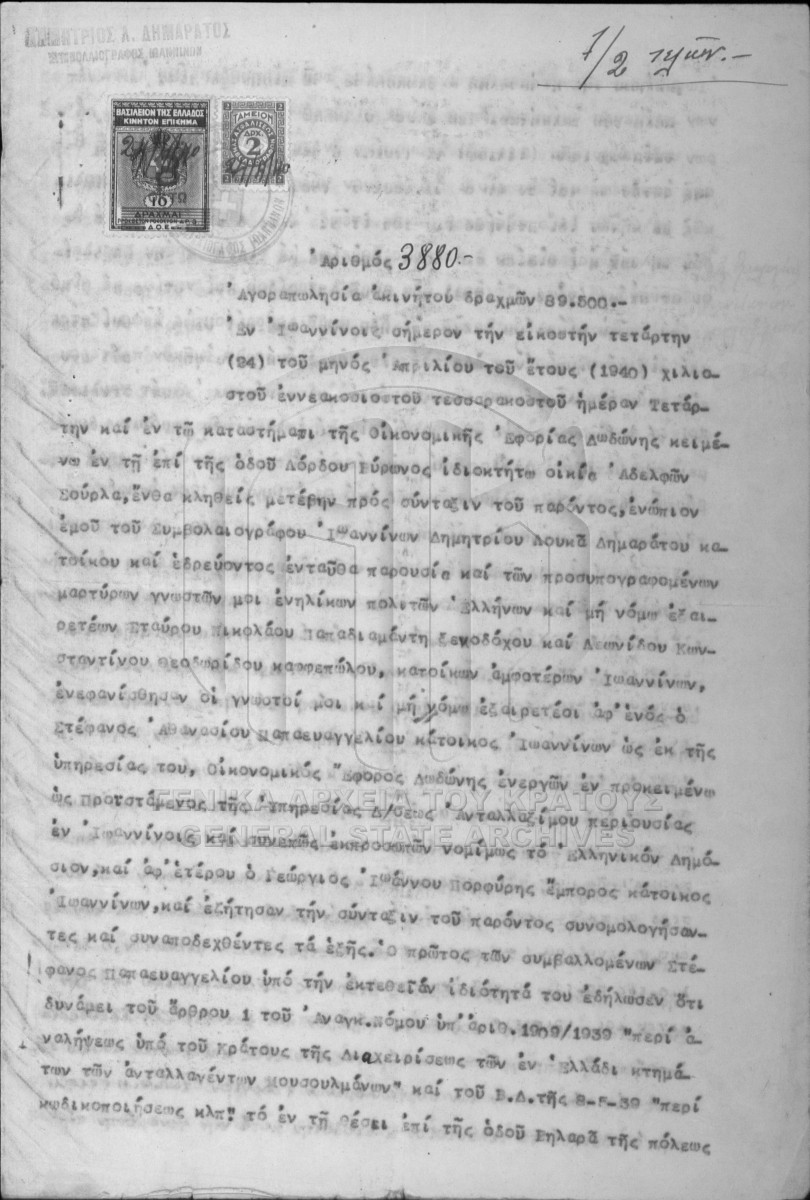 ΔΗΜΗΤΡΙΟΣ Λ. ΔΗΜΑΡΑΤΟΣ
ΣΥΜΒΟΛΑΙΟΓΡΑΦΟΣ ΙΩΑΝΝΙΝΩΝ
1/2
ΒΑΣΙΛΕΙΟΝ ΤΗΣ ΕΛΛΑΔΟΣ
ΚΙΝΗΤΟΝ ΕΠΙΣΗΜΑ
10
ΔΡΑΧΜΑΙ
Δ.Ο.Ε.
ΤΑΜΕΙΟΝ
ΔΡΧ.
2
Ἀριθμός 3880.-
Ἀγοραπωλησία ἀκινήτου δραχμῶν 39.500.-
Ἐν Ἰωαννίνοις σήμερον τήν εἰκοστήν τετάρτην
(24) τοῦ μηνός Ἀπριλίου τοῦ ἔτους (1940) χιλιο-
στοῦ ἐννεακοσιοστοῦ τεσσαρακοστοῦ ἡμέραν Τετάρ-
την καί ἐν τῶ καταστήματι τῆς Οἰκονομικῆς Ἐφορίας Δωδώνης κειμέ-
νω ἐν τῇ ἐπί τῆς ὁδοῦ Λόρδου Βύρωνος ἰδιοκτήτω οἰκίᾳ Ἀδελφῶν
Σούρλα, ἔνθα κληθείς μετέβην πρός σύνταξιν τοῦ παρόντος, ἐνώπιον
ἐμοῦ τοῦ Συμβολαιογράφου Ἰωαννίνων Δημητρίου Λουκᾶ Δημαράτου κα-
τοίκου καί ἑδρεύοντος ἐνταῦθα παρουσίᾳ καί τῶν προσυπογραφομένων
μαρτύρων γνωστῶν μοι ἐνηλίκων πολιτῶν Ἑλλήνων καί μή νόμω ἐξαι-
ρετέων Σταύρου Νικολάου Παπαδιαμάντη ξενοδόχου καί Λεωνίδου Κων-
σταντίνου Θεοδωρίδου καφφεπώλου, κατοίκων ἀμφοτέρων Ἰωαννίνων,
ἐνεφανίσθησαν οἱ γνωστοί μοι καί μή νόμω ἐξαιρετέοι ἀφ' ἑνός ὁ
Στέφανος Ἀθανασίου Παπαευαγγελίου κάτοικος Ἰωαννίνων ὡς ἐκ τῆς
ὑπηρεσίας του, Οἰκονομικός Ἔφορος Δωδώνης ἐνεργῶν ἐν προκειμένω
ὡς Προϊστάμενος τῆς Ὑπηρεσίας Δ/σεως Ἀνταλλαξίμου περιουσίας
ΓΕΝΙΚΑ ΑΡΧΕΙΑ ΤΟΥ ΚΡΑΤΟΥΣ
GENERAL STATE ARCHIVES
ἐν Ἰωαννίνοις καί συνεπῶς ἐκπροσωπῶν νομίμως τό Ἑλληνικόν Δημό-
σιον, καί ἀφ' ἑτέρου ὁ Γεώργιος Ἰωάννου Πορφύρης ἔμπορος κάτοικος
Ἰωαννίνων, καί ἐζήτησαν τήν σύνταξιν τοῦ παρόντος συνομολογήσαν-
τες καί συναποδεχθέντες τά ἑξῆς. Ὁ πρῶτος τῶν συμβαλλομένων Στέ-
φανος Παπαευαγγελίου ὑπό τήν ἐκτεθεῖσαν ἰδιότητά του ἐδήλωσεν ὅτι
δυνάμει τοῦ ἄρθρου 1 τοῦ Ἀναγκ. Νόμου ὑπ' ἀριθ. 1909/1939 "περί ἀ-
ναλήψεως ὑπό τοῦ Κράτους τῆς Διαχειρίσεως τῶν ἐν Ἑλλάδι κτημά-
των τῶν ἀνταλλαγέντων Μουσουλμάνων" καί τοῦ Β.Δ. τῆς 8-5-39 "περί
κωδικοποιήσεως κλπ" τό ἐν τῇ θέσει ἐπί τῆς ὁδοῦ Βηλαρᾶ τῆς πόλεως